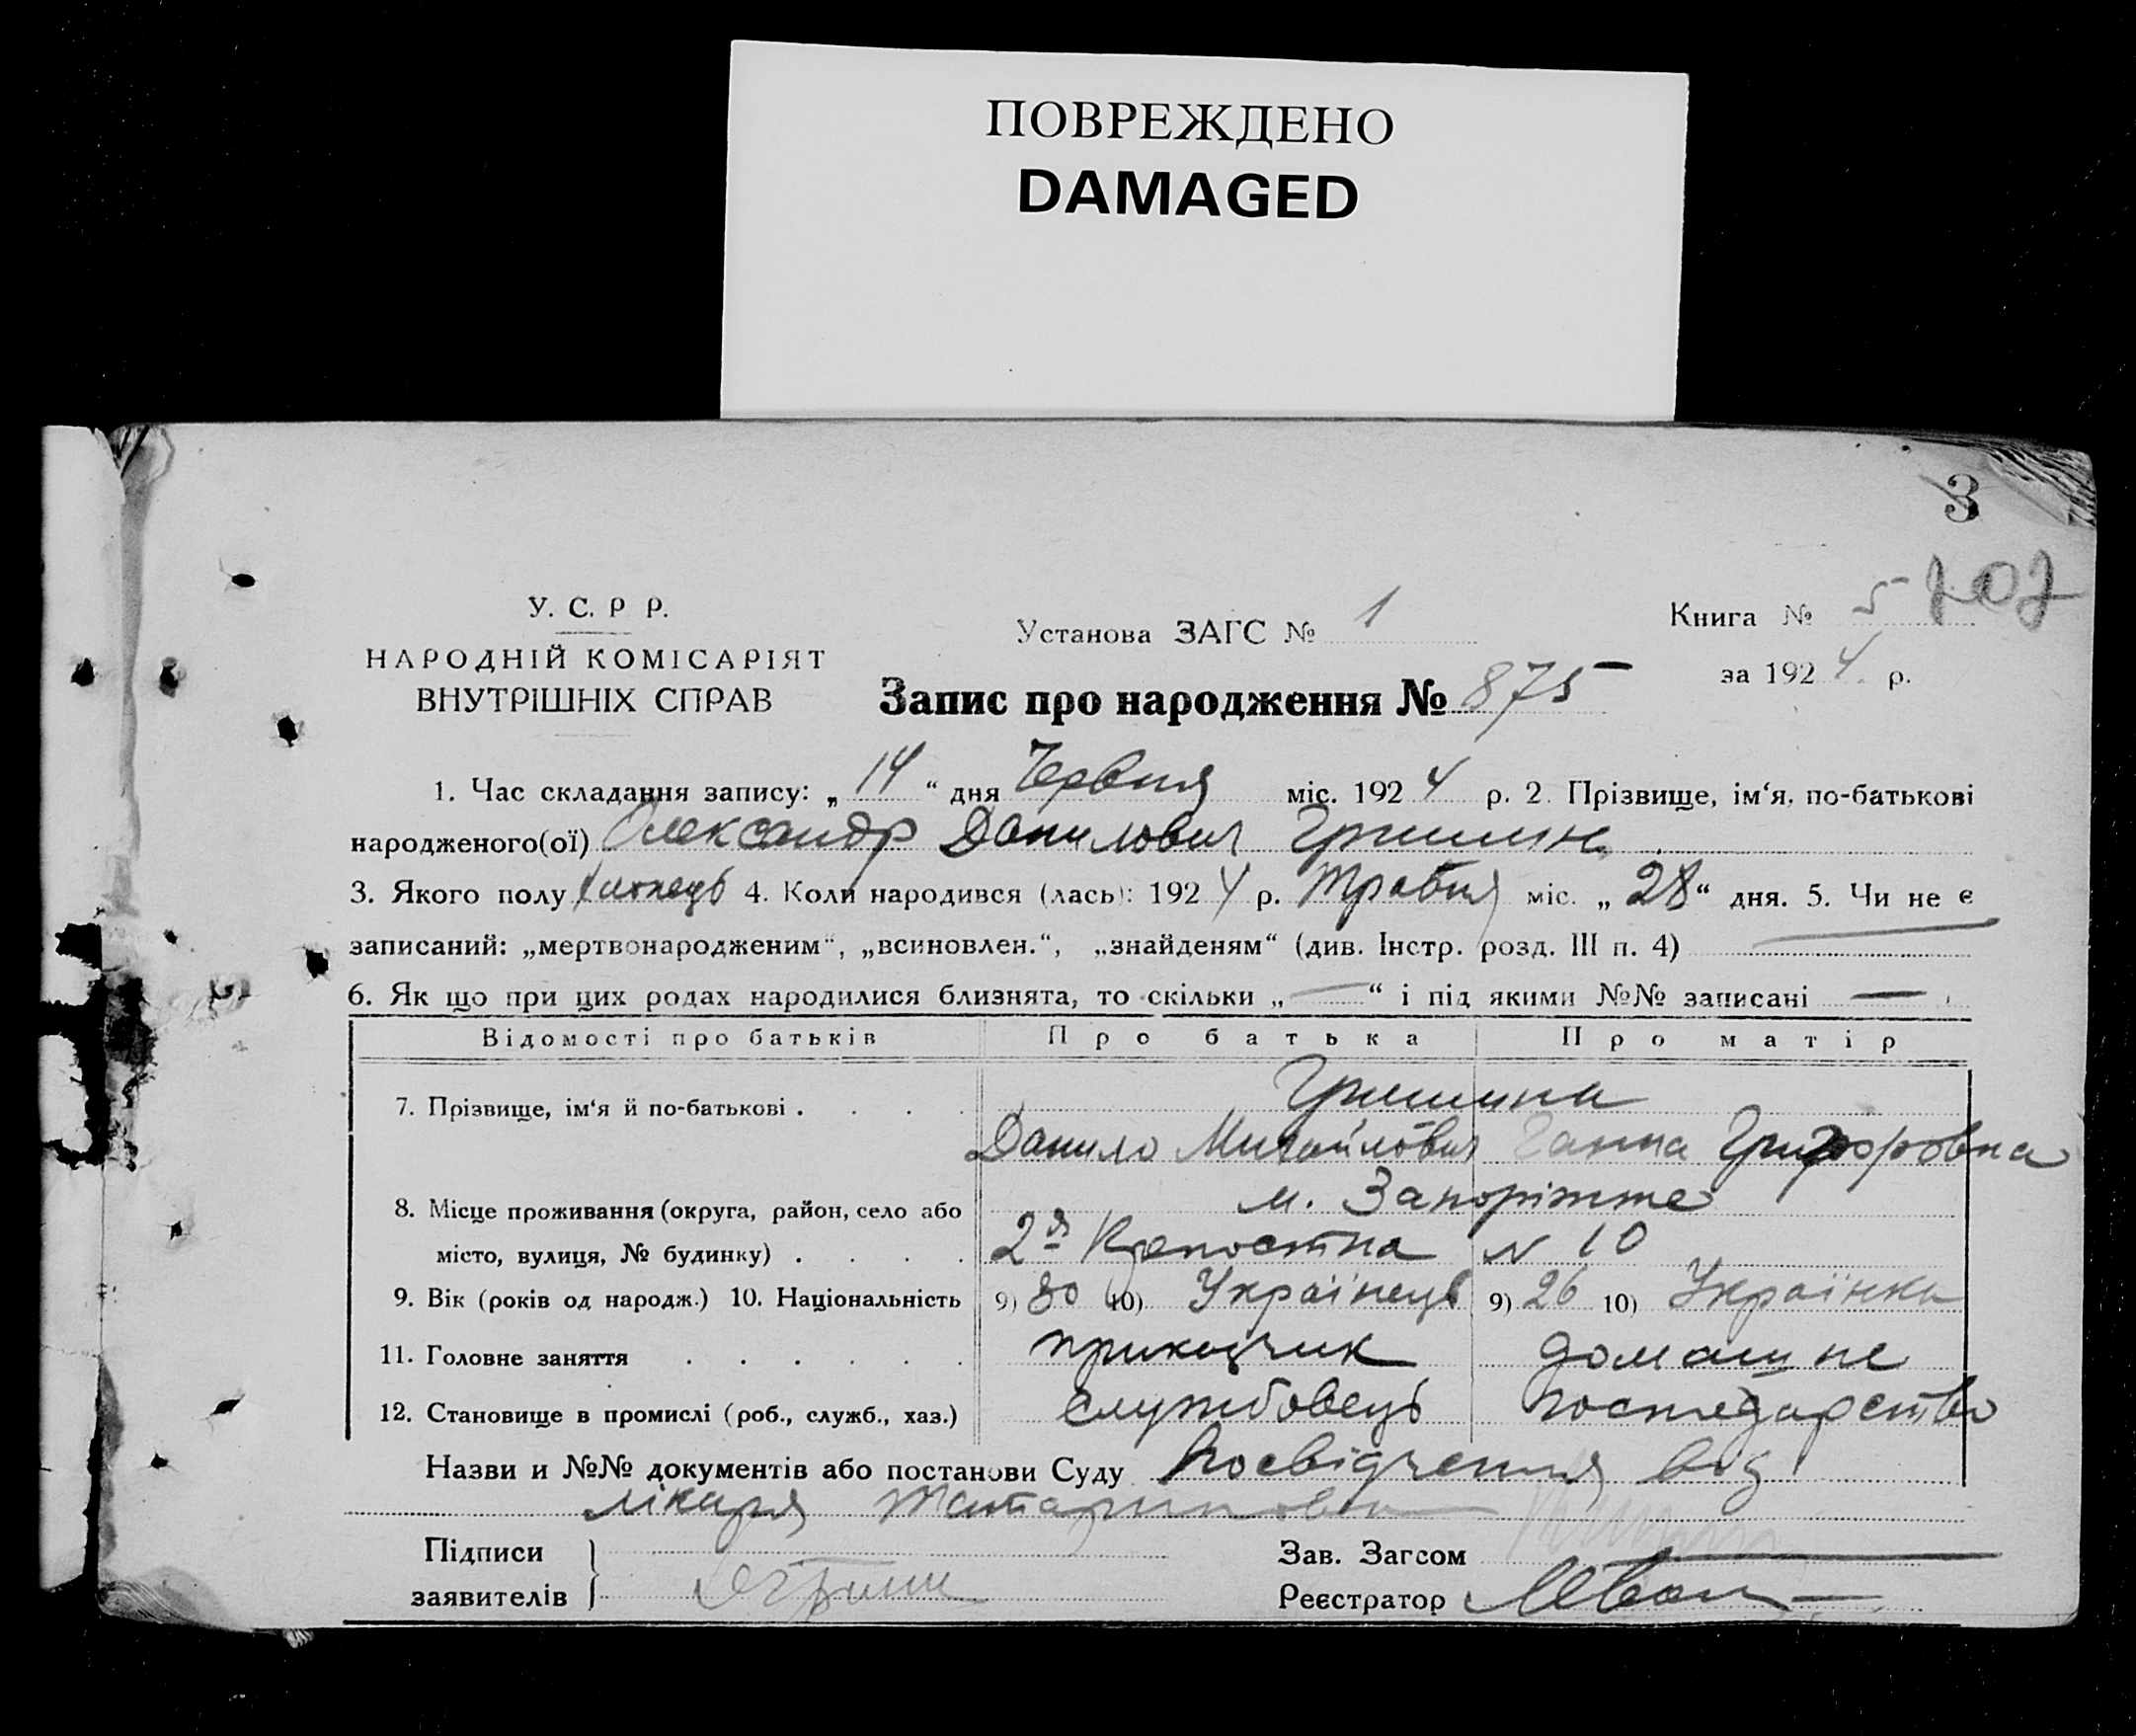 ПОВРЕЖДЕНО
DAMAGED
3
У. С. Р Р.
НАРОДНІЙ КОМІСАРІЯТ
ВНУТРІШНІХ СПРАВ
Установа ЗАГС № 1
Книга № 5 707
за 1924 р.
Запис про народження № 875
1. Час складання запису: „ 14 “ дня Червня міс. 1924 р. 2. Прізвище, ім‘я, по-батькові
народженого(ої) Олександр Данилович Гришин
3. Якого полу хлопець 4. Коли народився (лась): 1924 р. Травня міс. „ 28 “ дня. 5. Чи не є
записаний: „мертвонародженим“, „всиновлен.“, „знайденям“ (див. Інстр. розд. III п. 4) —
6. Як що при цих родах народилися близнята, то скільки „ — “ і під якими №№ записані —
Відомості про батьків Про батька Про матір
7. Прізвище, ім‘я й по-батькові . . . . Гришини
Данило Михайлович Ганна Григоровна
8. Місце проживання (округа, район, село або м. Запоріжже
місто, вулиця, № будинку) . . . . 2я Крепостна N 10
9. Вік (років од народж.) 10. Національність 9) 30 10) Українець 9) 26 10) Українка
11. Головне заняття . . . . . . прикащик домашне
12. Становище в промислі (роб., служб., хаз.) службовець господарство
Назви и №№ документів або постанови Суду Посвідчення від
лікаря Татаринова
Підписи
заявителів
Зав. Загсом
Реєстратор